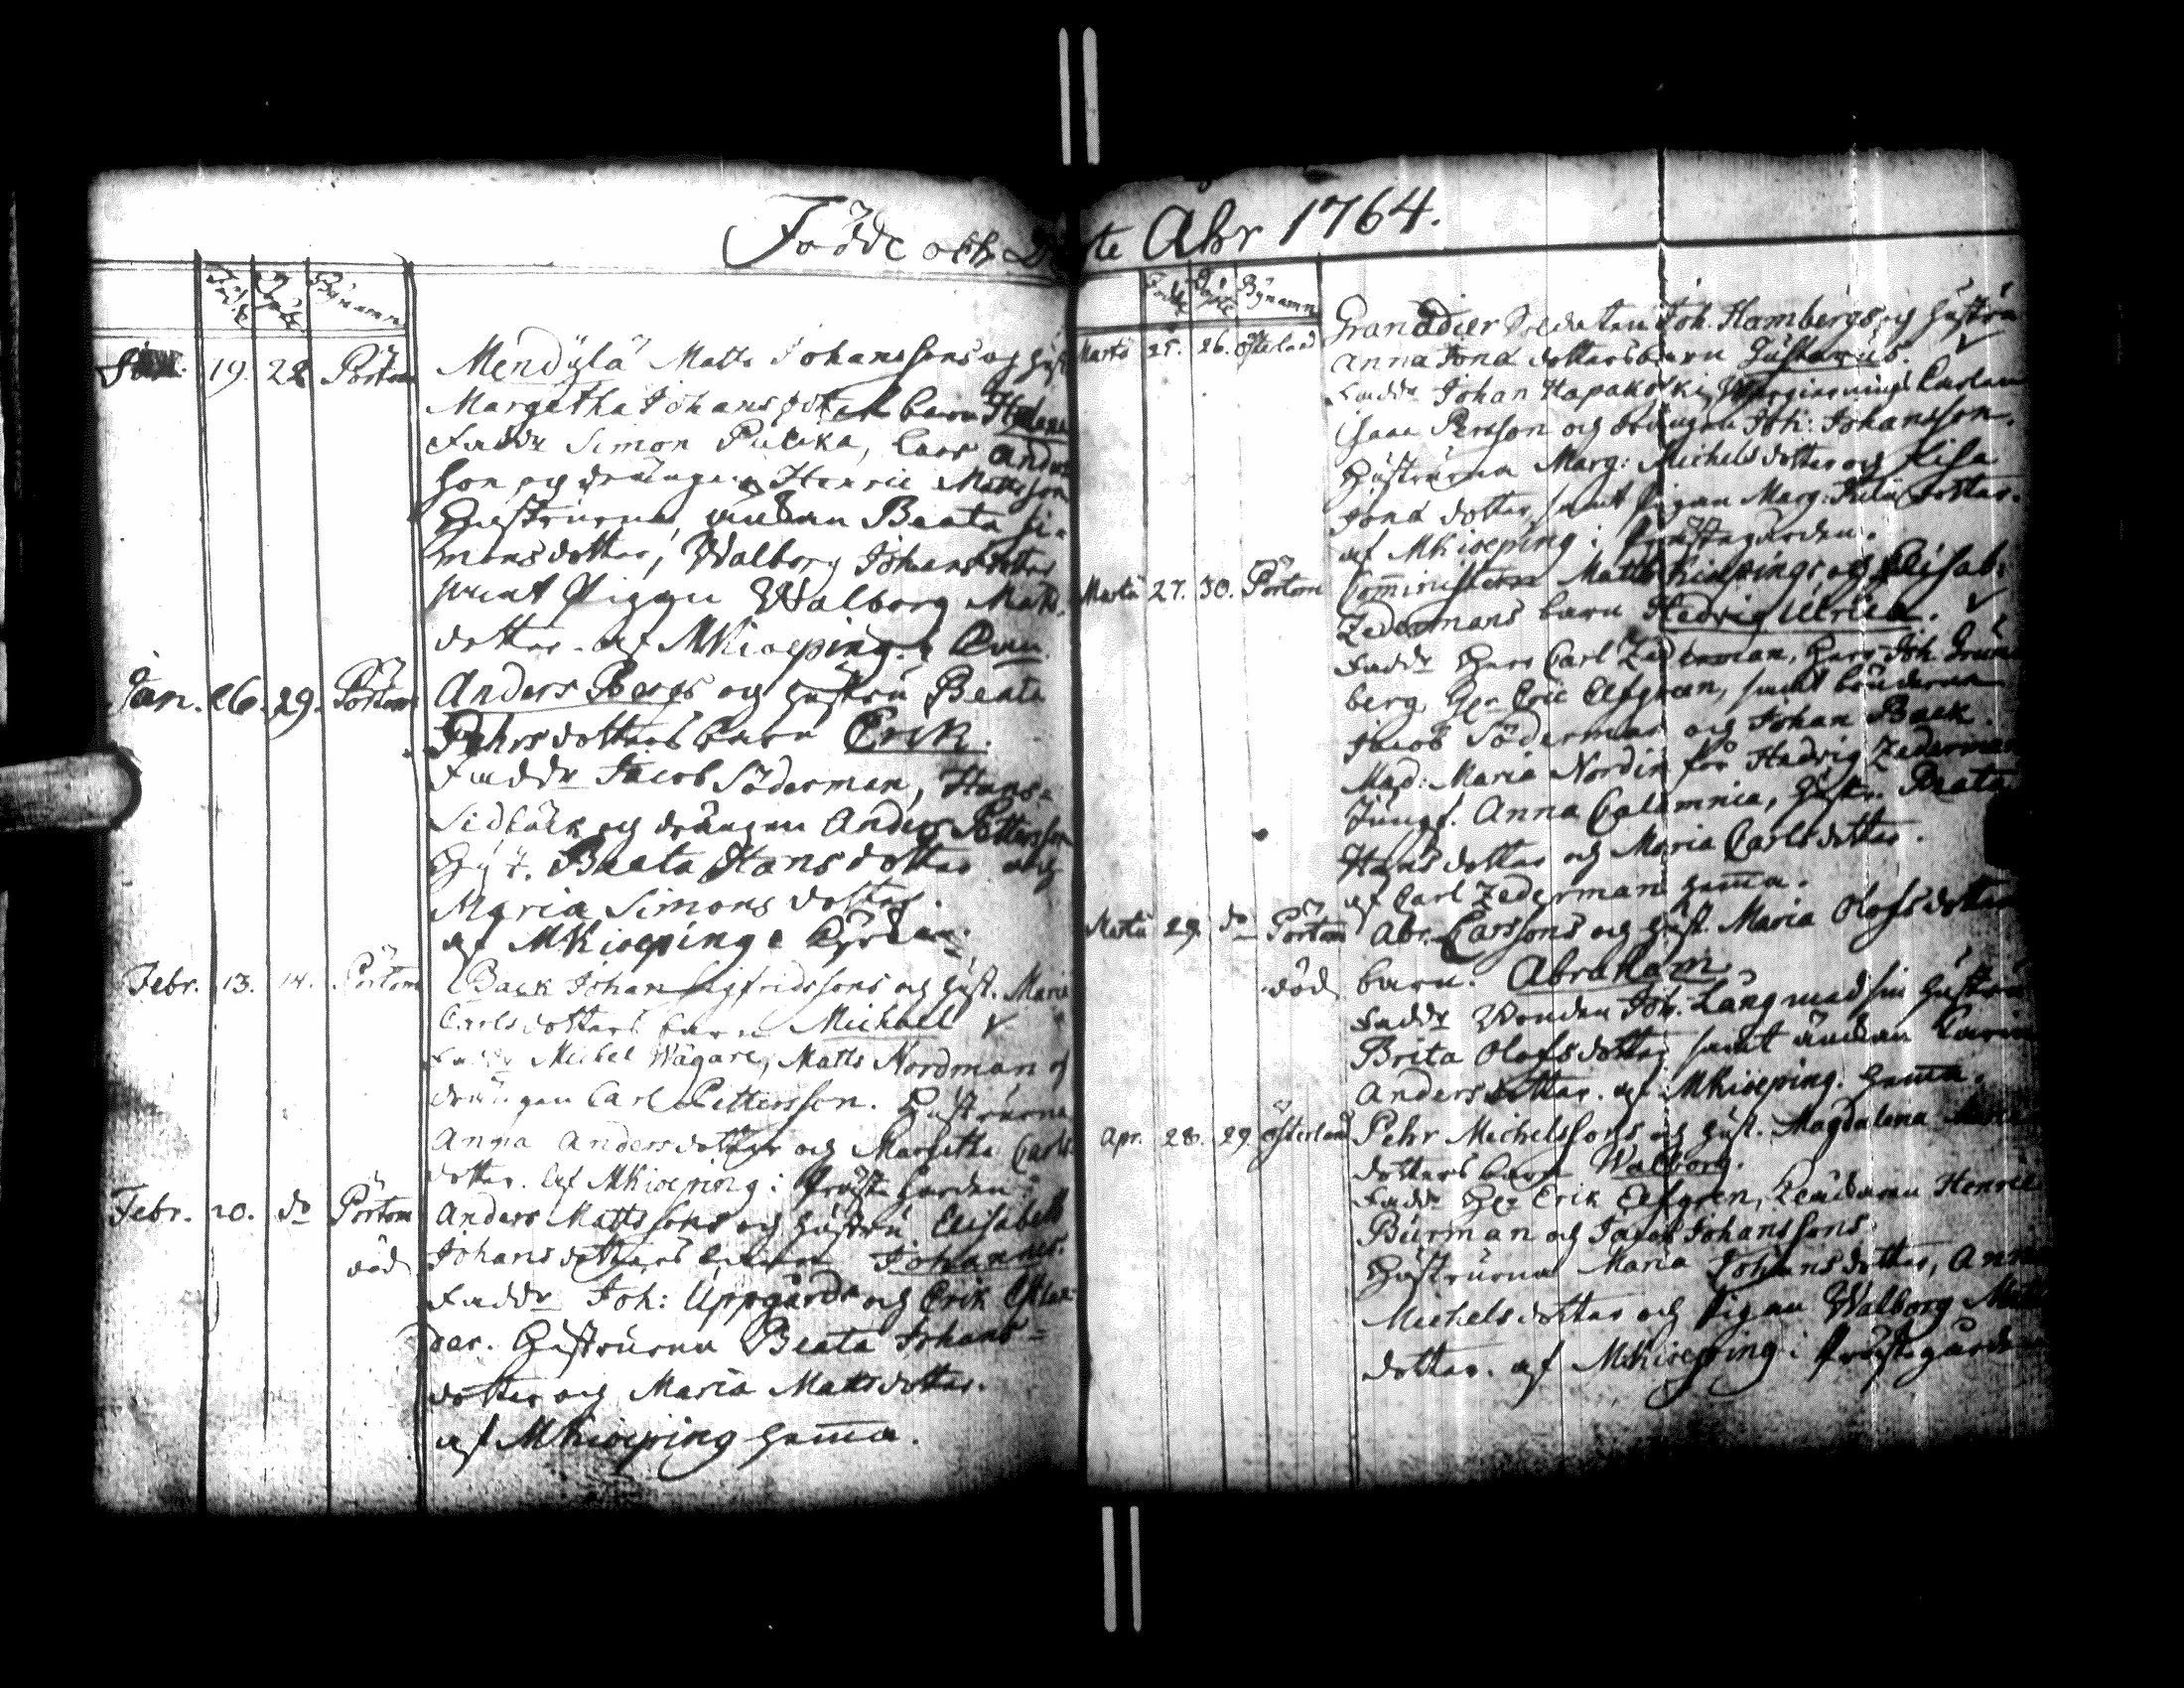 Födde och Döpte Ahr 1764.
Födde Döpte Bÿnamn
19. 22 Pörtom Mendÿlä Matts Johanssons og Hust
Margetha Johansdotters barn Helena
Faddr Simon Pulcka, Lars Anders
son og drängen Henric Mattsson
Hustrurna, änkan Beata Si-
monsdotter, Walborg Johansdotter
samt Pigan Walborg Matts
dotter. af MKioeping.
Jan. 26. 29. Pörtom Anders Bergs og hustru Beata
Pehrsdotters barn Erik.
Faddr Jacob Söderman, Hans
Sidbäck og drängen Anders Pettersson
Hust. Beata Hansdotter og
Maria Simonsdotter.
af MKioeping i Kyrkan.
Febr. 13. 14. Pörtom Back Johan Sigfridssons og Hust. Maria
Carlsdotters barn Michael
Faddr Michel Wägare, Matts Nordman og
drängen Carl Pettersson. Hustrurna
Anna Andersdotter og Margetha Carls
dotter. af MKioeping i Prästegården.
Febr. 20. do Pörtom Anders Mattssons og Hustru Elisabeth
död Johansdotters barn Johannes.
Faddr Joh: Uppgårds og Erik Öster
der. Hustrurna Beata Johans-
dotter og Maria Mattsdotter.
af MKioeping hema.
Födde Döpte Bÿnamn
Martii 25. 26. Österland Granadier Soldaten Joh. Hambergs og Hustru
Anna Jonæ dotters barn Gustavus.
Faddr Johan Hapakoski, Carlen
Isaac Persson og drängen Joh: Johansson.
Hustrurna Marg: Michelsdotter og Lisa
Jonæ dotter, samt Pigan Marg: dotter.
af MKioeping i Prästegården.
Martii 27. 30. Pörtom Comministern Matts Kioepings og Elisab:
Zedermans barn Hedvig Ulrica.
Faddr Herr Carl Zederman, Herr Joh. Grün
berg, Hr Eric Elfgren, samt bönderna
Jacob Söderman og Johan Back.
Mad: Maria Nordin för Hedvig Zederman
Jungf. Anna Calamnia, Hustr. Beata
Hansdotter og Maria Carlsdotter.
af Carl Zederman hema.
Martii 29. do Pörtom Abr. Carssons og Hust. Maria Olofsdotters
död barn. Abraham
Faddr Bonden Joh. Lång med sin Hustru
Brita Olofsdotter samt änkan Carin
Andersdotter. af MKioeping. hema.
Apr. 28. 29 Österland Pehr Michelssons og Hust. Magdalena
dotters barn Walborg.
Faddr Hr Erik Elfgren, Henric
Burman og Jacob Johanssons.
Hustrurna Maria Johansdotter, Anna
Michelsdotter og Pigan Walborg Matts
dotter. af MKioeping i Prästegården